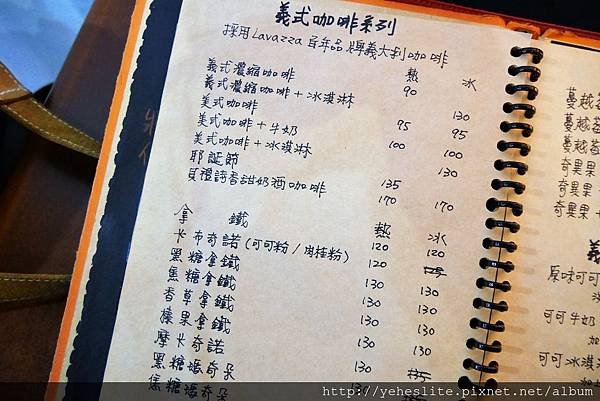 義式咖啡系列
採用Lavazza百年品牌義大利咖啡
熱 冰
義式濃縮咖啡 90
義式濃縮咖啡+冰淇淋 130
美式咖啡 95 95
美式咖啡+牛奶 100 100
美式咖啡+冰淇淋 130
耶誕節 135
貝禮詩香甜奶酒咖啡 170 170
拿鐵 熱 冰
卡布奇諾(可可粉/肉桂粉) 120 120
黑糖拿鐵 120
焦糖拿鐵 130 130
香草拿鐵 130 130
榛果拿鐵 130 130
摩卡奇諾 130 130
黑糖瑪奇朵 130
焦糖瑪奇朵 130
蔓越莓
蔓越莓
蔓越莓
奇異果
奇異果+
奇異果+
義
原味可可
可可牛奶
加
可可冰淇
加
http://yeheslite.pixnet.net/album